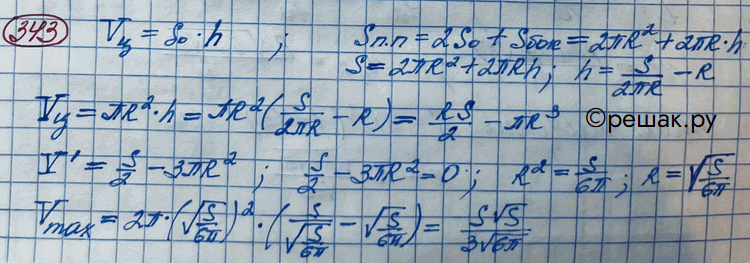 343 Vц = Sо · h ; Sп.п = 2Sо + Sбок = 2πR² + 2πR·h
S = 2πR² + 2πRh ; h = S/(2πR) − R
Vц = πR²·h = πR²(S/(2πR) − R) = RS/2 − πR³
©решак.ру
V' = S/2 − 3πR² ; S/2 − 3πR² = 0 ; R² = S/(6π) ; R = √(S/(6π))
Vmax = 2π·(√(S/(6π)))² · (S/√(S/(6π)) − √(S/(6π))) = S√S/(3√(6π))